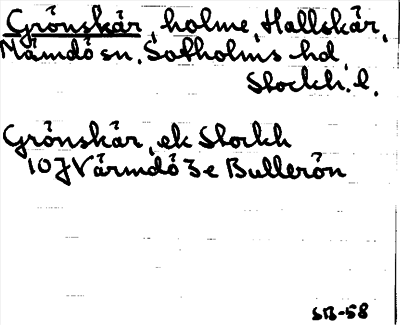 Grönskär, holme, Hallskär,
Nämdö sn. Sotholms hd,
Stockh. l.
Grönskär, ek Stockh
10J Värmdö 3e Bullerön
SB-58